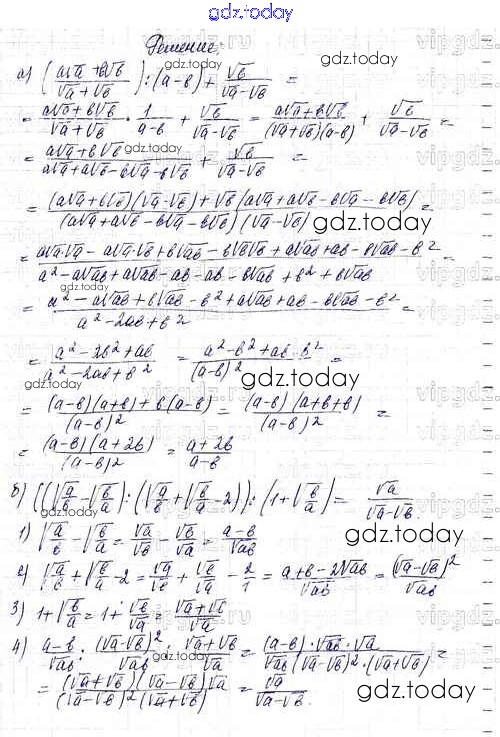 gdz.today
Решение:
а) ((a√a + b√b)/(√a + √b)) : (a-b) + √b/(√a - √b) =
gdz.today
= (a√a + b√b)/(√a + √b) · 1/(a-b) + √b/(√a - √b) = (a√a + b√b)/((√a + √b)(a-b)) + √b/(√a - √b) =
gdz.today
= (a√a + b√b)/(a√a + a√b - b√a - b√b) + √b/(√a - √b) =
= ((a√a + b√b)(√a - √b) + √b(a√a + a√b - b√a - b√b))/((a√a + a√b - b√a - b√b)(√a - √b)) =
gdz.today
= (a√a·√a - a√a·√b + b√ab - b√b√b + a√ab + ab - b√ab - b²)/(a² - a√ab + a√ab - ab - ab - b√ab + b² + b√ab) =
= (a² - a√ab + b√ab - b² + a√ab + ab - b√ab - b²)/(a² - 2ab + b²) =
= (a² - 2b² + ab)/(a² - 2ab + b²) = (a² - b² + ab - b²)/(a-b)² =
gdz.today
= ((a-b)(a+b) + b(a-b))/(a-b)² = ((a-b)(a+b+b))/(a-b)² =
= ((a-b)(a+2b))/(a-b)² = (a+2b)/(a-b)
gdz.today
б) ((√(a/b) - √(b/a)) : (√(a/b) + √(b/a) - 2)) : (1 + √(b/a)) = √a/(√a - √b).
gdz.today
1) √(a/b) - √(b/a) = √a/√b - √b/√a = (a-b)/√ab
gdz.today
2) √(a/b) + √(b/a) - 2 = √a/√b + √b/√a - 2/1 = (a+b-2√ab)/√ab = (√a - √b)²/√ab
3) 1 + √(b/a) = 1 + √b/√a = (√a + √b)/√a
gdz.today
4) (a-b)/√ab : (√a - √b)²/√ab : (√a + √b)/√a = ((a-b)·√ab·√a)/(√ab(√a - √b)²·(√a + √b)) =
gdz.today
= ((√a + √b)(√a - √b)√a)/((√a - √b)²(√a + √b)) = √a/(√a - √b).
gdz.today